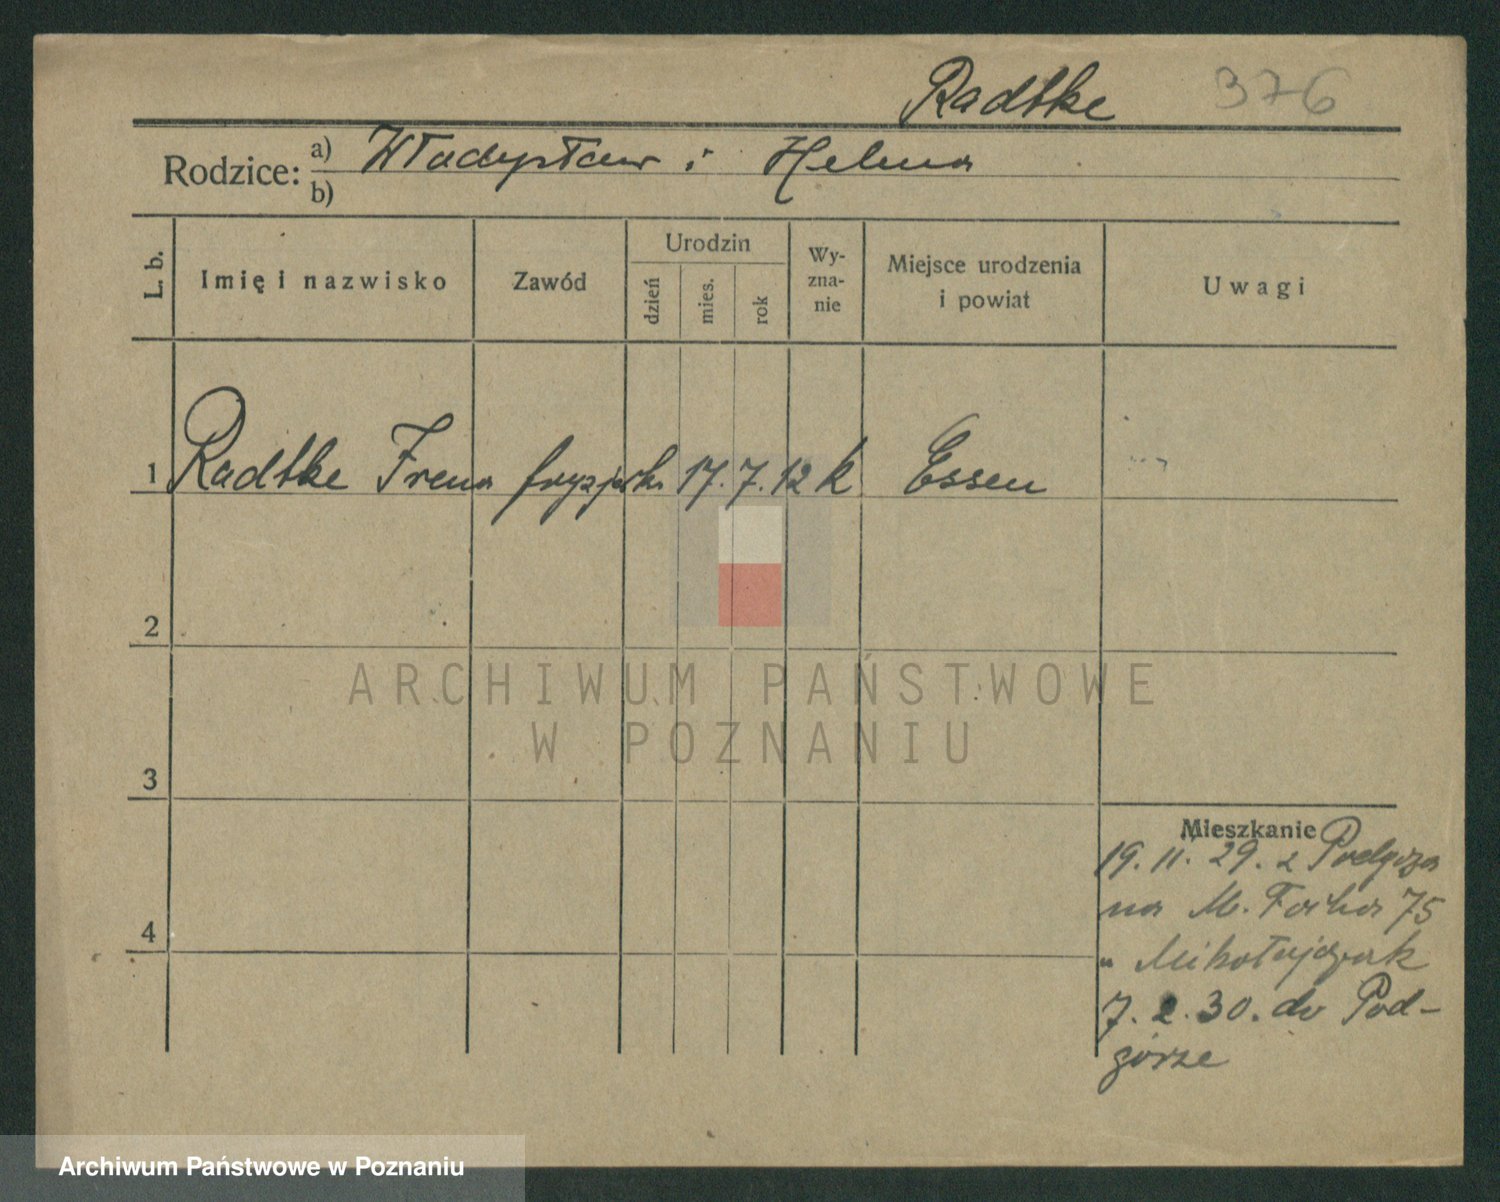 Radtke 376
Rodzice: a) Władysław i Helena
b)
L. b. Imię i nazwisko Zawód Urodzin dzień mies. rok Wy-zna-nie Miejsce urodzenia i powiat Uwagi
1 Radtke Irena fryzjerka 17. 7. 12 k Essen
2
ARCHIWUM PAŃSTWOWE
W POZNANIU
3
Mieszkanie
19. 11. 29. z Podgórza
na M. Focha 75
u Mikołajczak
4
7. 2. 30. do Pod-
górze
Archiwum Państwowe w Poznaniu